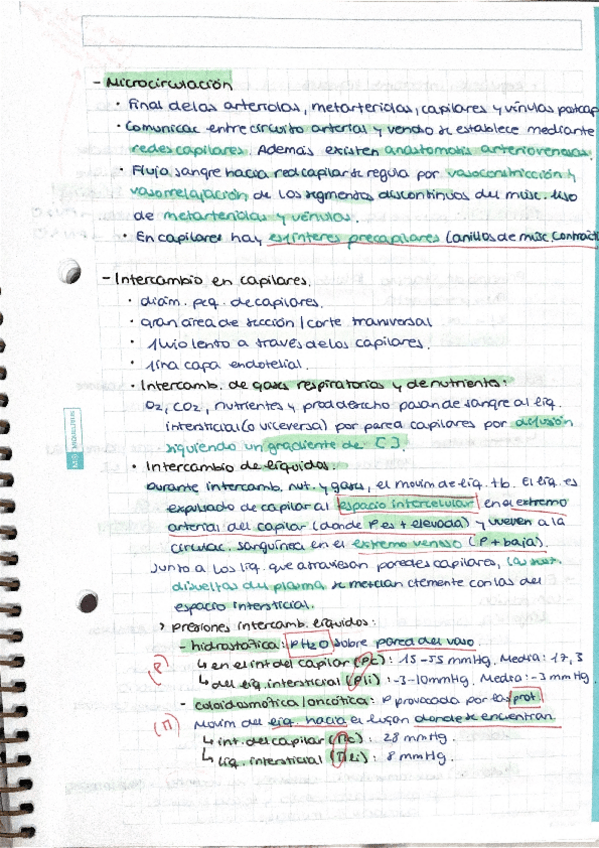 - Microcirculación
· Final de las arteriolas, metarteriolas, capilares y vénulas postcap
· Comunicac entre circuito arterias y venoso se establece mediante
redes capilares. Además existen anastomosis arteriovenosas.
· Flujo sangre hacia red capilar se regula por vasoconstricción y
vasorrelajación de los segmentos discontinuos del músc. liso
de metarteriolas y vénulas.
· En capilares hay esfínteres precapilares (anillos de músc. contráct
- Intercambio en capilares.
· diám. peq. de capilares.
· gran área de sección / corte transversal
· flujo lento a través de los capilares.
· fina capa endotelial.
· Intercamb. de gases respiratorios y de nutrientes:
O2, CO2, nutrientes y prod desecho pasan de sangre al líq.
intersticial (o viceversa) por pared capilares por difusión
siguiendo un gradiente de [ ].
· Intercambio de líquidos:
Durante intercamb. nut. y gases, el movim de líq. tb. El líq. es
expulsado de capilar al espacio intercelular en el extremo
arterial del capilar (donde P es + elevada) y vuelven a la
circulac. sanguínea en el extremo venoso (P + baja).
Junto a los líq. que atraviesan paredes capilares, las sust.
disueltas del plasma se mezclan ctemente con las del
espacio intersticial.
> presiones intercamb. líquidos:
- hidrostática: PH2O sobre pared del vaso
(P) ↳ en el int del capilar (Pc): 15-55 mmHg. Media: 17,3
↳ del líq. intersticial (Pli): -3-10mmHg. Media: -3 mmHg.
- coloidosmótica / oncótica: P provocada por las prot.
(Π) Movim del líq. hacia el lugar donde se encuentran.
↳ int. del capilar (Πc): 28 mmHg.
↳ líq. intersticial (Πli): 8 mmHg.